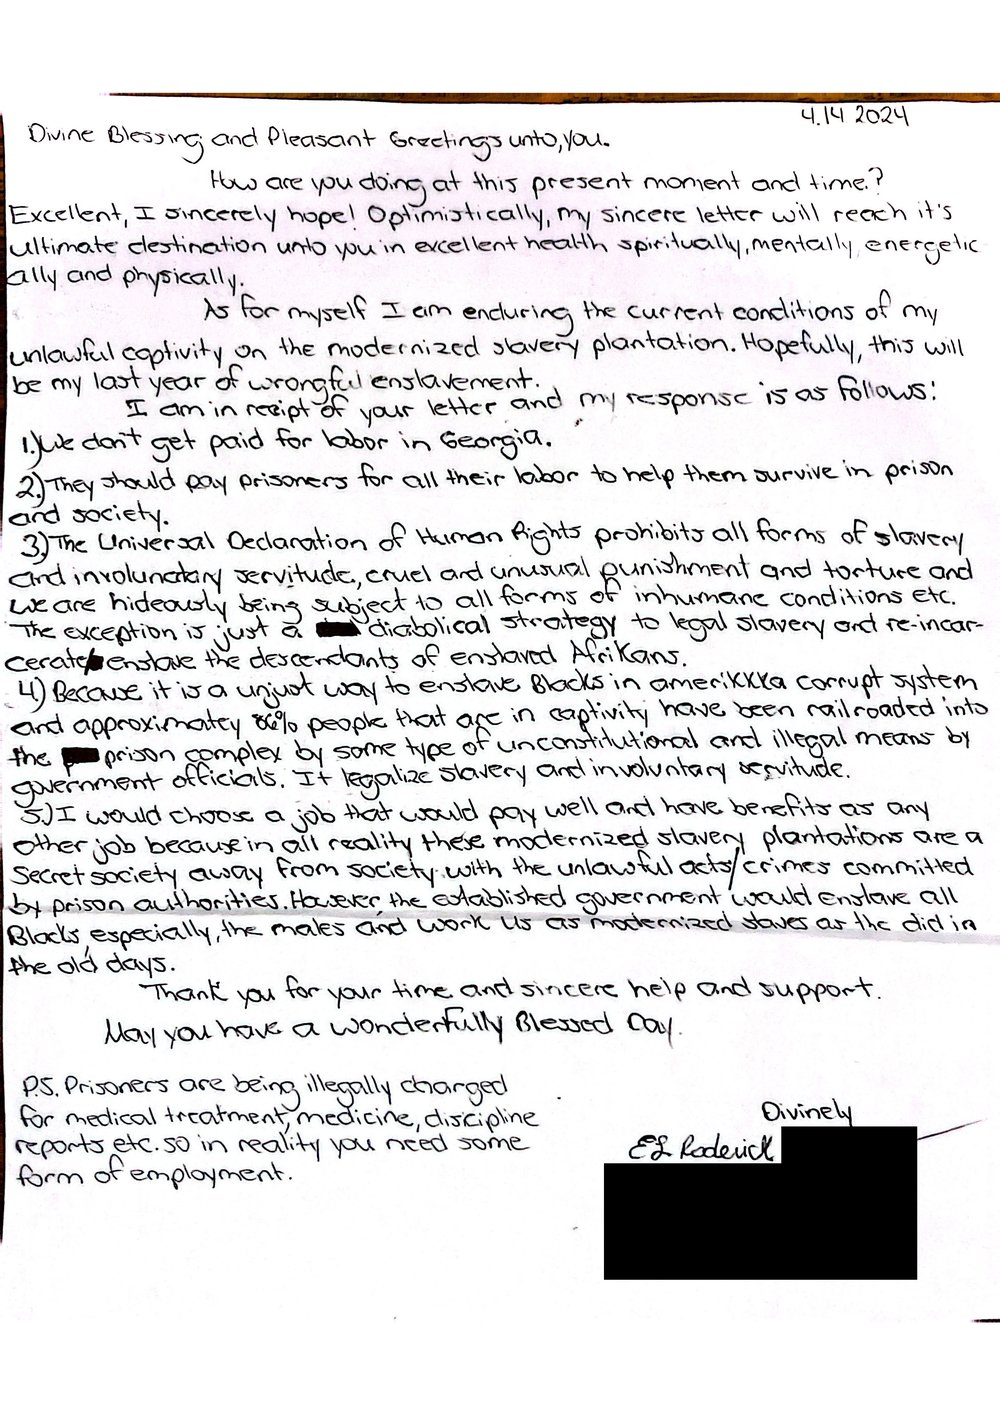 4.14 2024
Divine Blessing and Pleasant Greetings unto, you.
How are you doing at this present moment and time.?
Excellent, I sincerely hope! Optimistically, my sincere letter will reach it's
ultimate destination unto you in excellent health spiritually, mentally, energetic
ally and physically.
As for myself I am enduring the current conditions of my
unlawful captivity on the modernized slavery plantation. Hopefully, this will
be my last year of wrongful enslavement.
I am in receipt of your letter and my response is as follows:
1.) We don't get paid for labor in Georgia.
2.) They should pay prisoners for all their labor to help them survive in prison
and society.
3.) The Universal Declaration of Human Rights prohibits all forms of slavery
and involunatary servitude, cruel and unusual punishment and torture and
we are hideously being subject to all forms of inhumane conditions etc.
The exception is just a diabolical strategy to legal slavery and re-incar-
cerate/enslave the descendants of enslaved Afrikans.
4.) Because it is a unjust way to enslave Blacks in amerikkka corrupt system
and approximatey % people that are in captivity have been railroaded into
the prison complex by some type of unconstitutional and illegal means by
government officials. It legalize slavery and involuntary servitude.
5.) I would choose a job that would pay well and have benefits as any
other job because in all reality these modernized slavery plantations are a
Secret society away from society with the unlawful acts/crimes committed
by prison authorities. However, the established government would enslave all
Blacks, especially, the males and work us as modernized slaves as the did in
the old days.
Thank you for your time and sincere help and support.
May you have a wonderfully Blessed Day.
P.S. Prisoners are being illegally charged
for medical treatment, medicine, discipline
reports etc. so in reality you need some
form of employment.
Divinely
Roderick